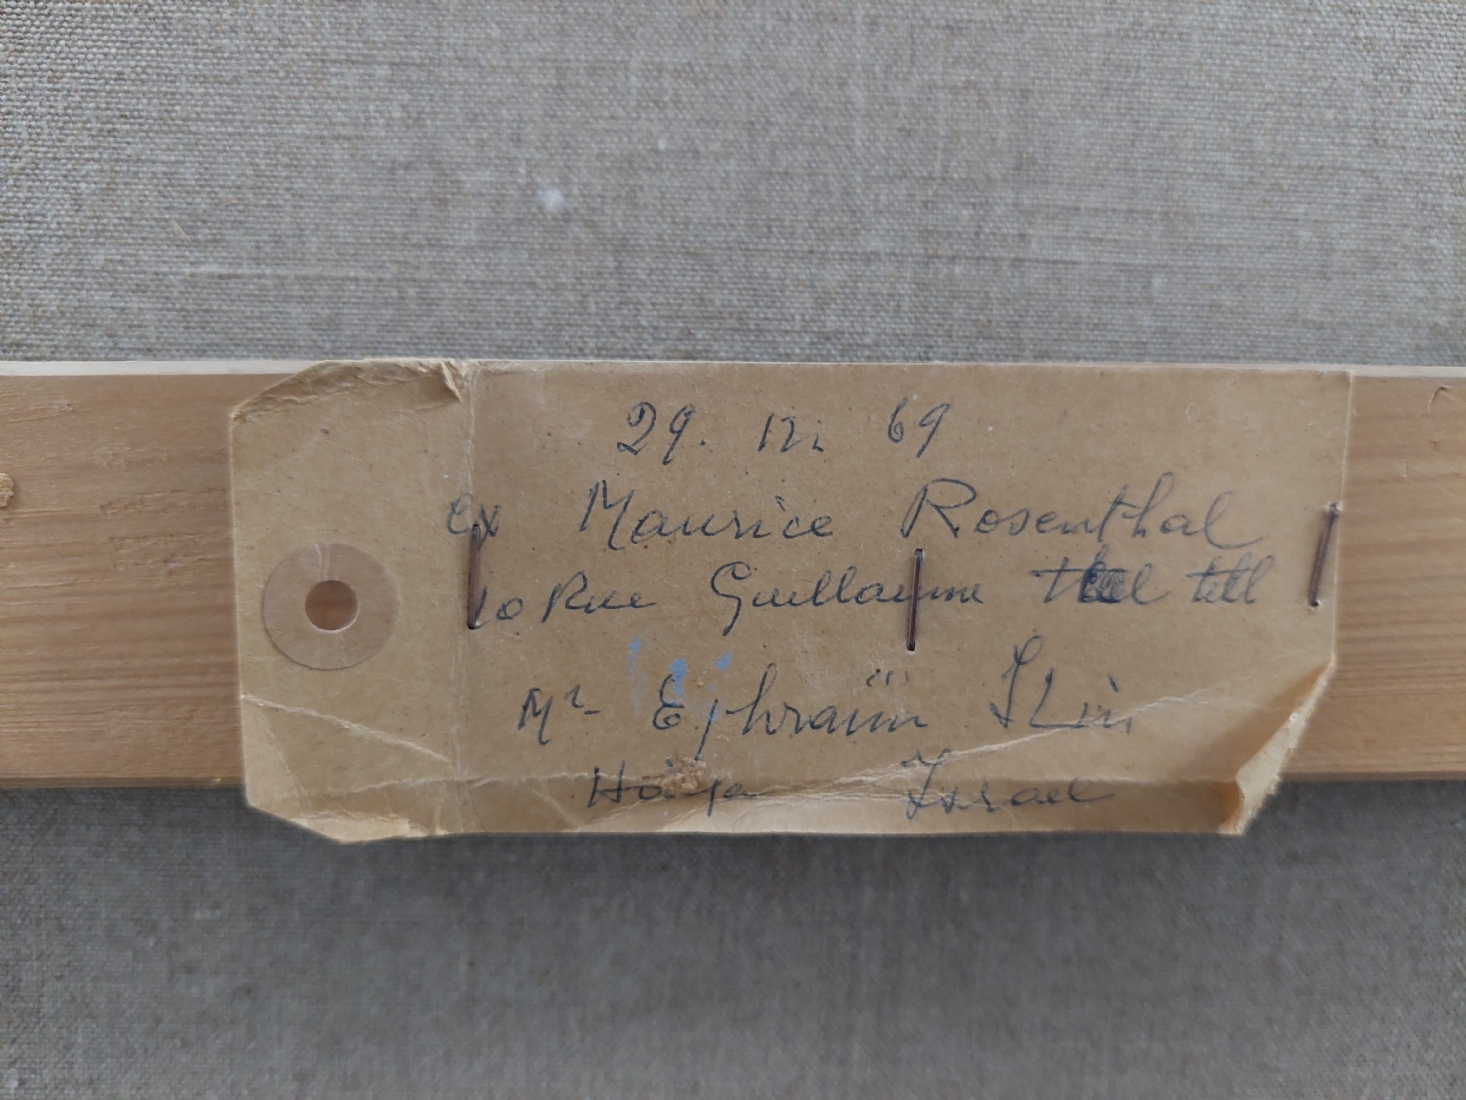 29. 12. 69
ex Maurice Rosenthal
10 Rue Guillaume tell
Mr Ephraïm Ilin
Haifa Israel